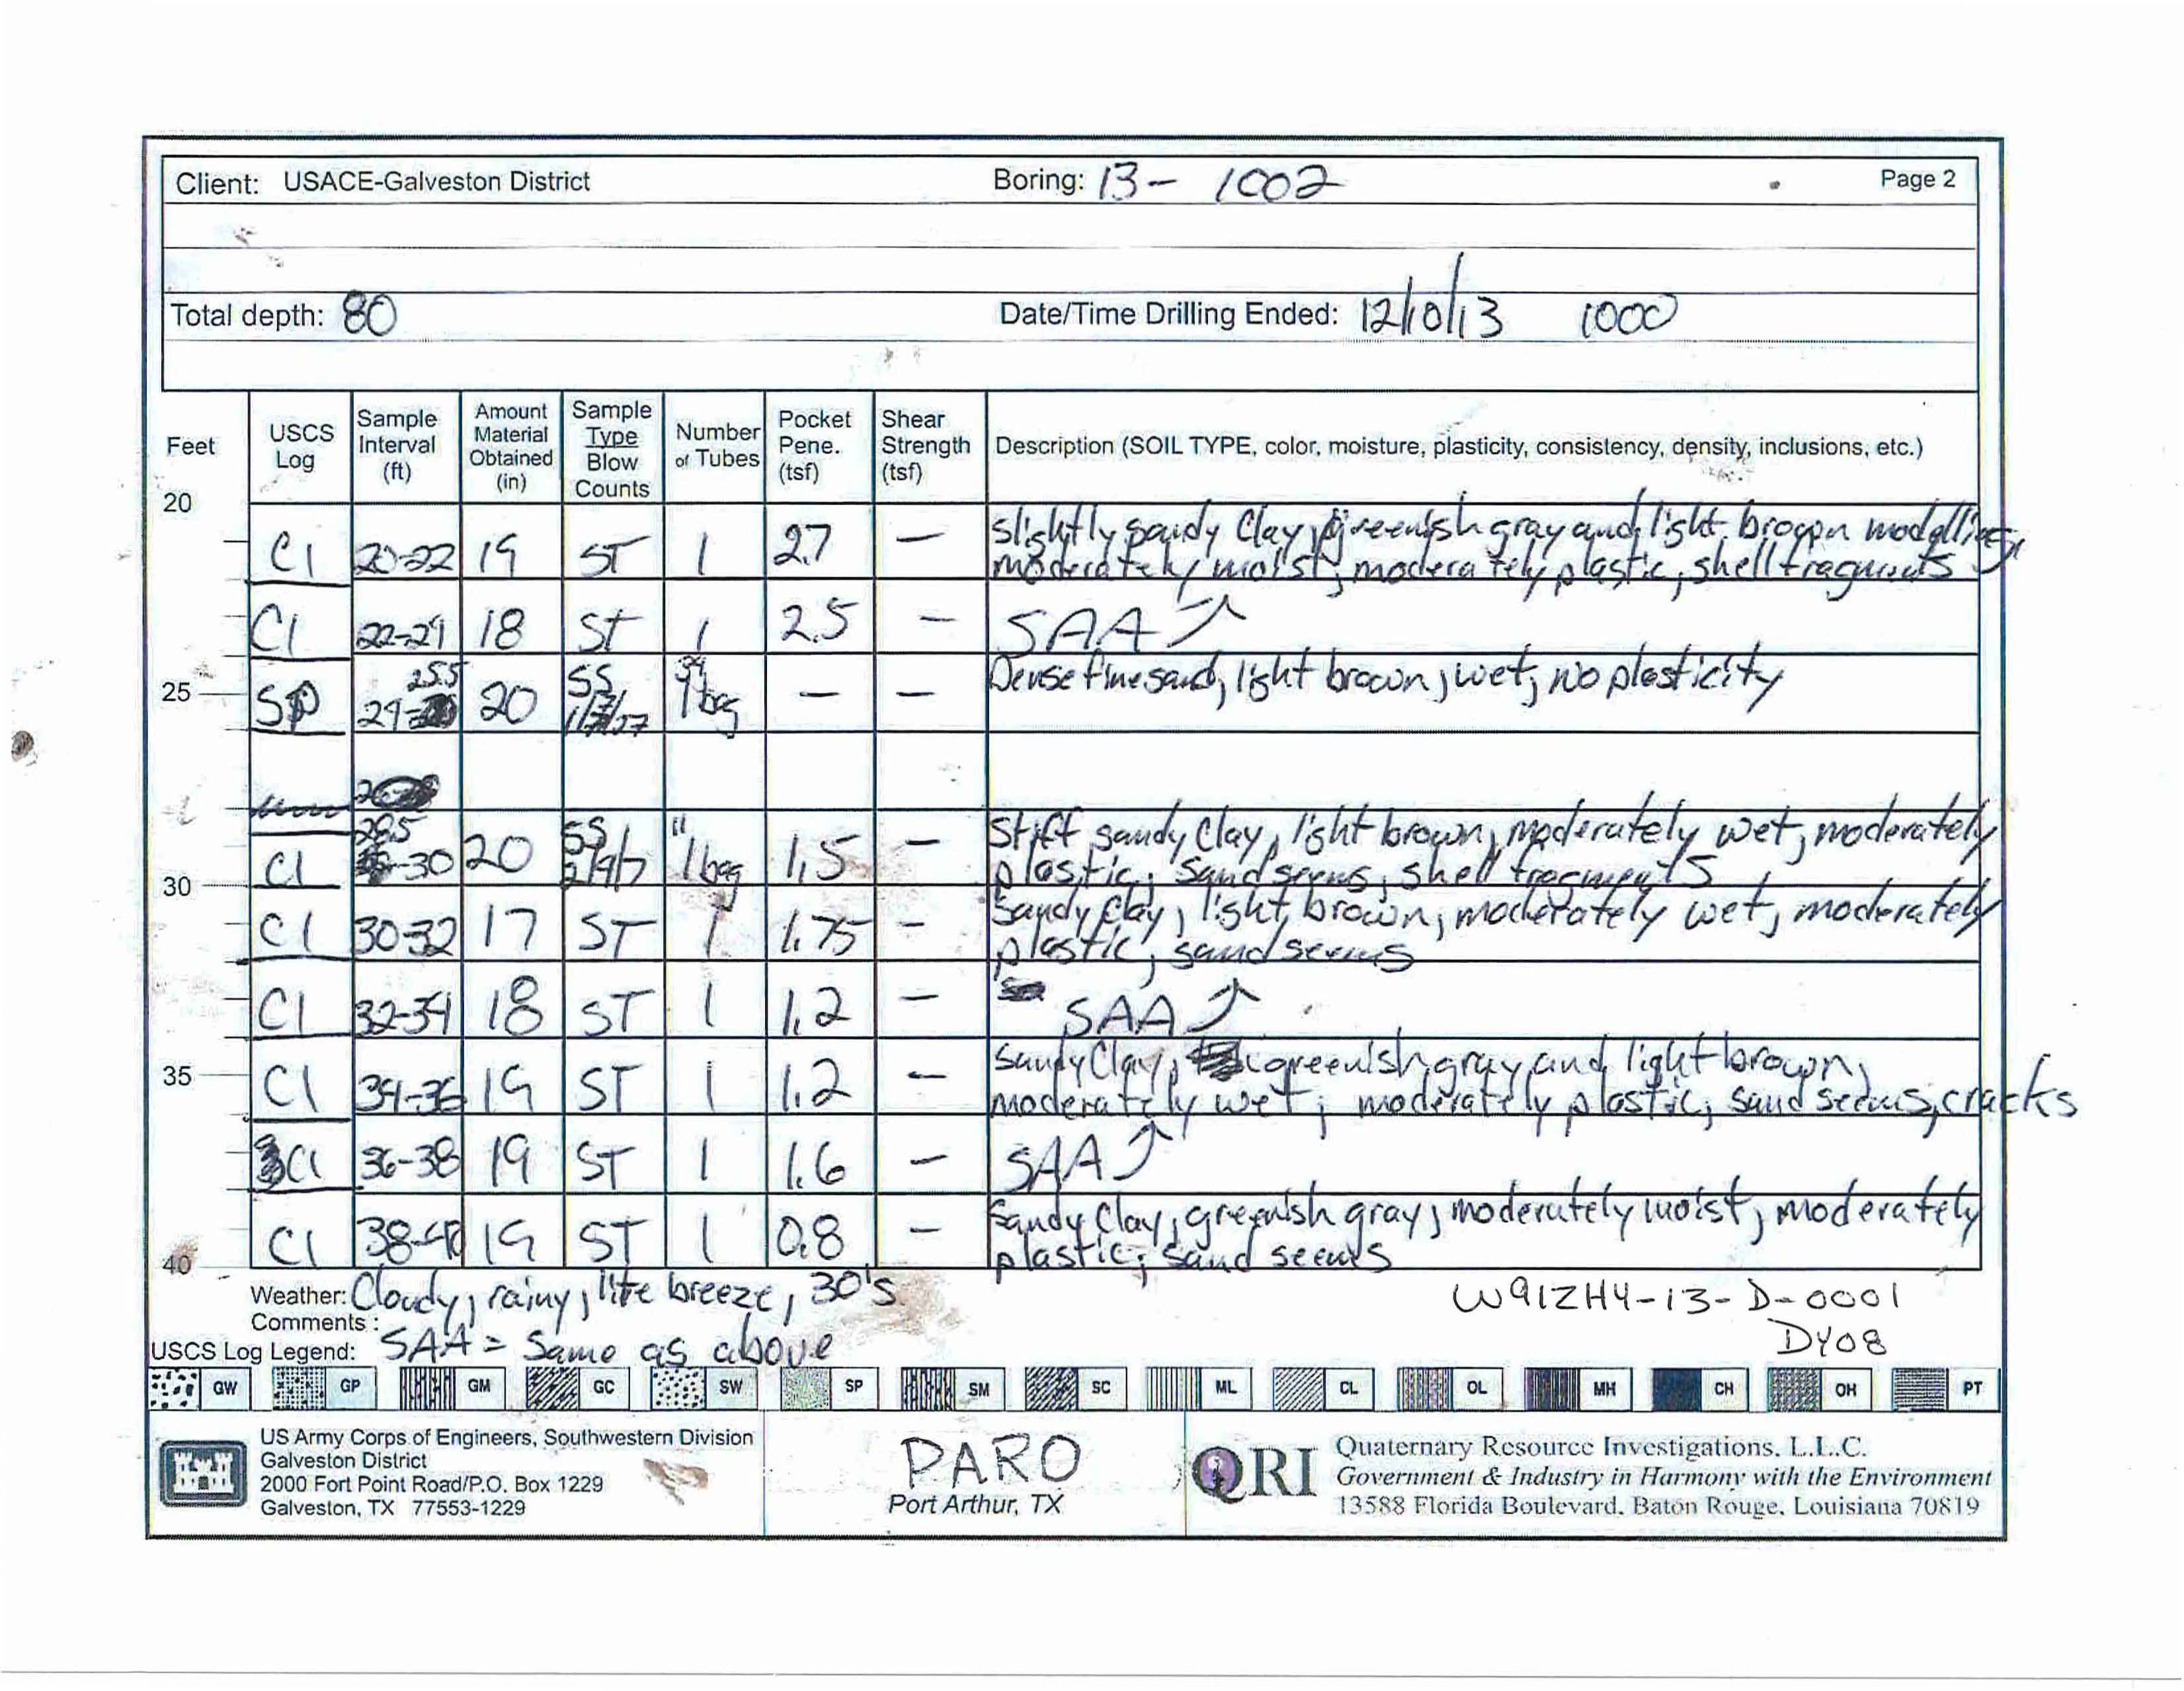 Client: USACE-Galveston District Boring: 13- 1002 Page 2
Total depth: 80 Date/Time Drilling Ended: 12/10/13 1000
Feet USCS Log Sample Interval (ft) Amount Material Obtained (in) Sample Type Blow Counts Number of Tubes Pocket Pene. (tsf) Shear Strength (tsf) Description (SOIL TYPE, color, moisture, plasticity, consistency, density, inclusions, etc.)
20
Cl 20-22 19 ST 1 2.7 — slightly sandy Clay, greenish gray and light brown modelling,
moderately moist; moderately plastic; shell fragments
Cl 22-24 18 ST 1 2.5 — SAA
25 SP 24-25.5 20 SS 1 bag — — Dense fine sand, light brown, wet, no plasticity
Cl 28.5-30 20 SS 1 bag 1.5 — Stiff sandy Clay, light brown, moderately wet, moderately
plastic; sand seems, shell fragments
30
Cl 30-32 17 ST 1 1.75 — Sandy Clay, light brown, moderately wet, moderately
plastic, sand seems
Cl 32-34 18 ST 1 1.2 — SAA
35 Cl 34-36 19 ST 1 1.2 — Sandy Clay, greenish gray and light brown,
moderately wet; moderately plastic; sand seems, cracks
Cl 36-38 19 ST 1 1.6 — SAA
Cl 38-40 19 ST 1 0.8 — Sandy Clay, greenish gray, moderately moist, moderately
plastic; sand seems
40
Weather: Cloudy, rainy, lite breeze, 30's
W912HY-13-D-0001
Comments:
SAA = Same as above
DY08
USCS Log Legend:
GW GP GM GC SW SP SM SC ML CL OL MH CH OH PT
US Army Corps of Engineers, Southwestern Division
Galveston District
2000 Fort Point Road/P.O. Box 1229
Galveston, TX 77553-1229
PARO
Port Arthur, TX
QRI
Quaternary Resource Investigations, L.L.C.
Government & Industry in Harmony with the Environment
13588 Florida Boulevard, Baton Rouge, Louisiana 70819